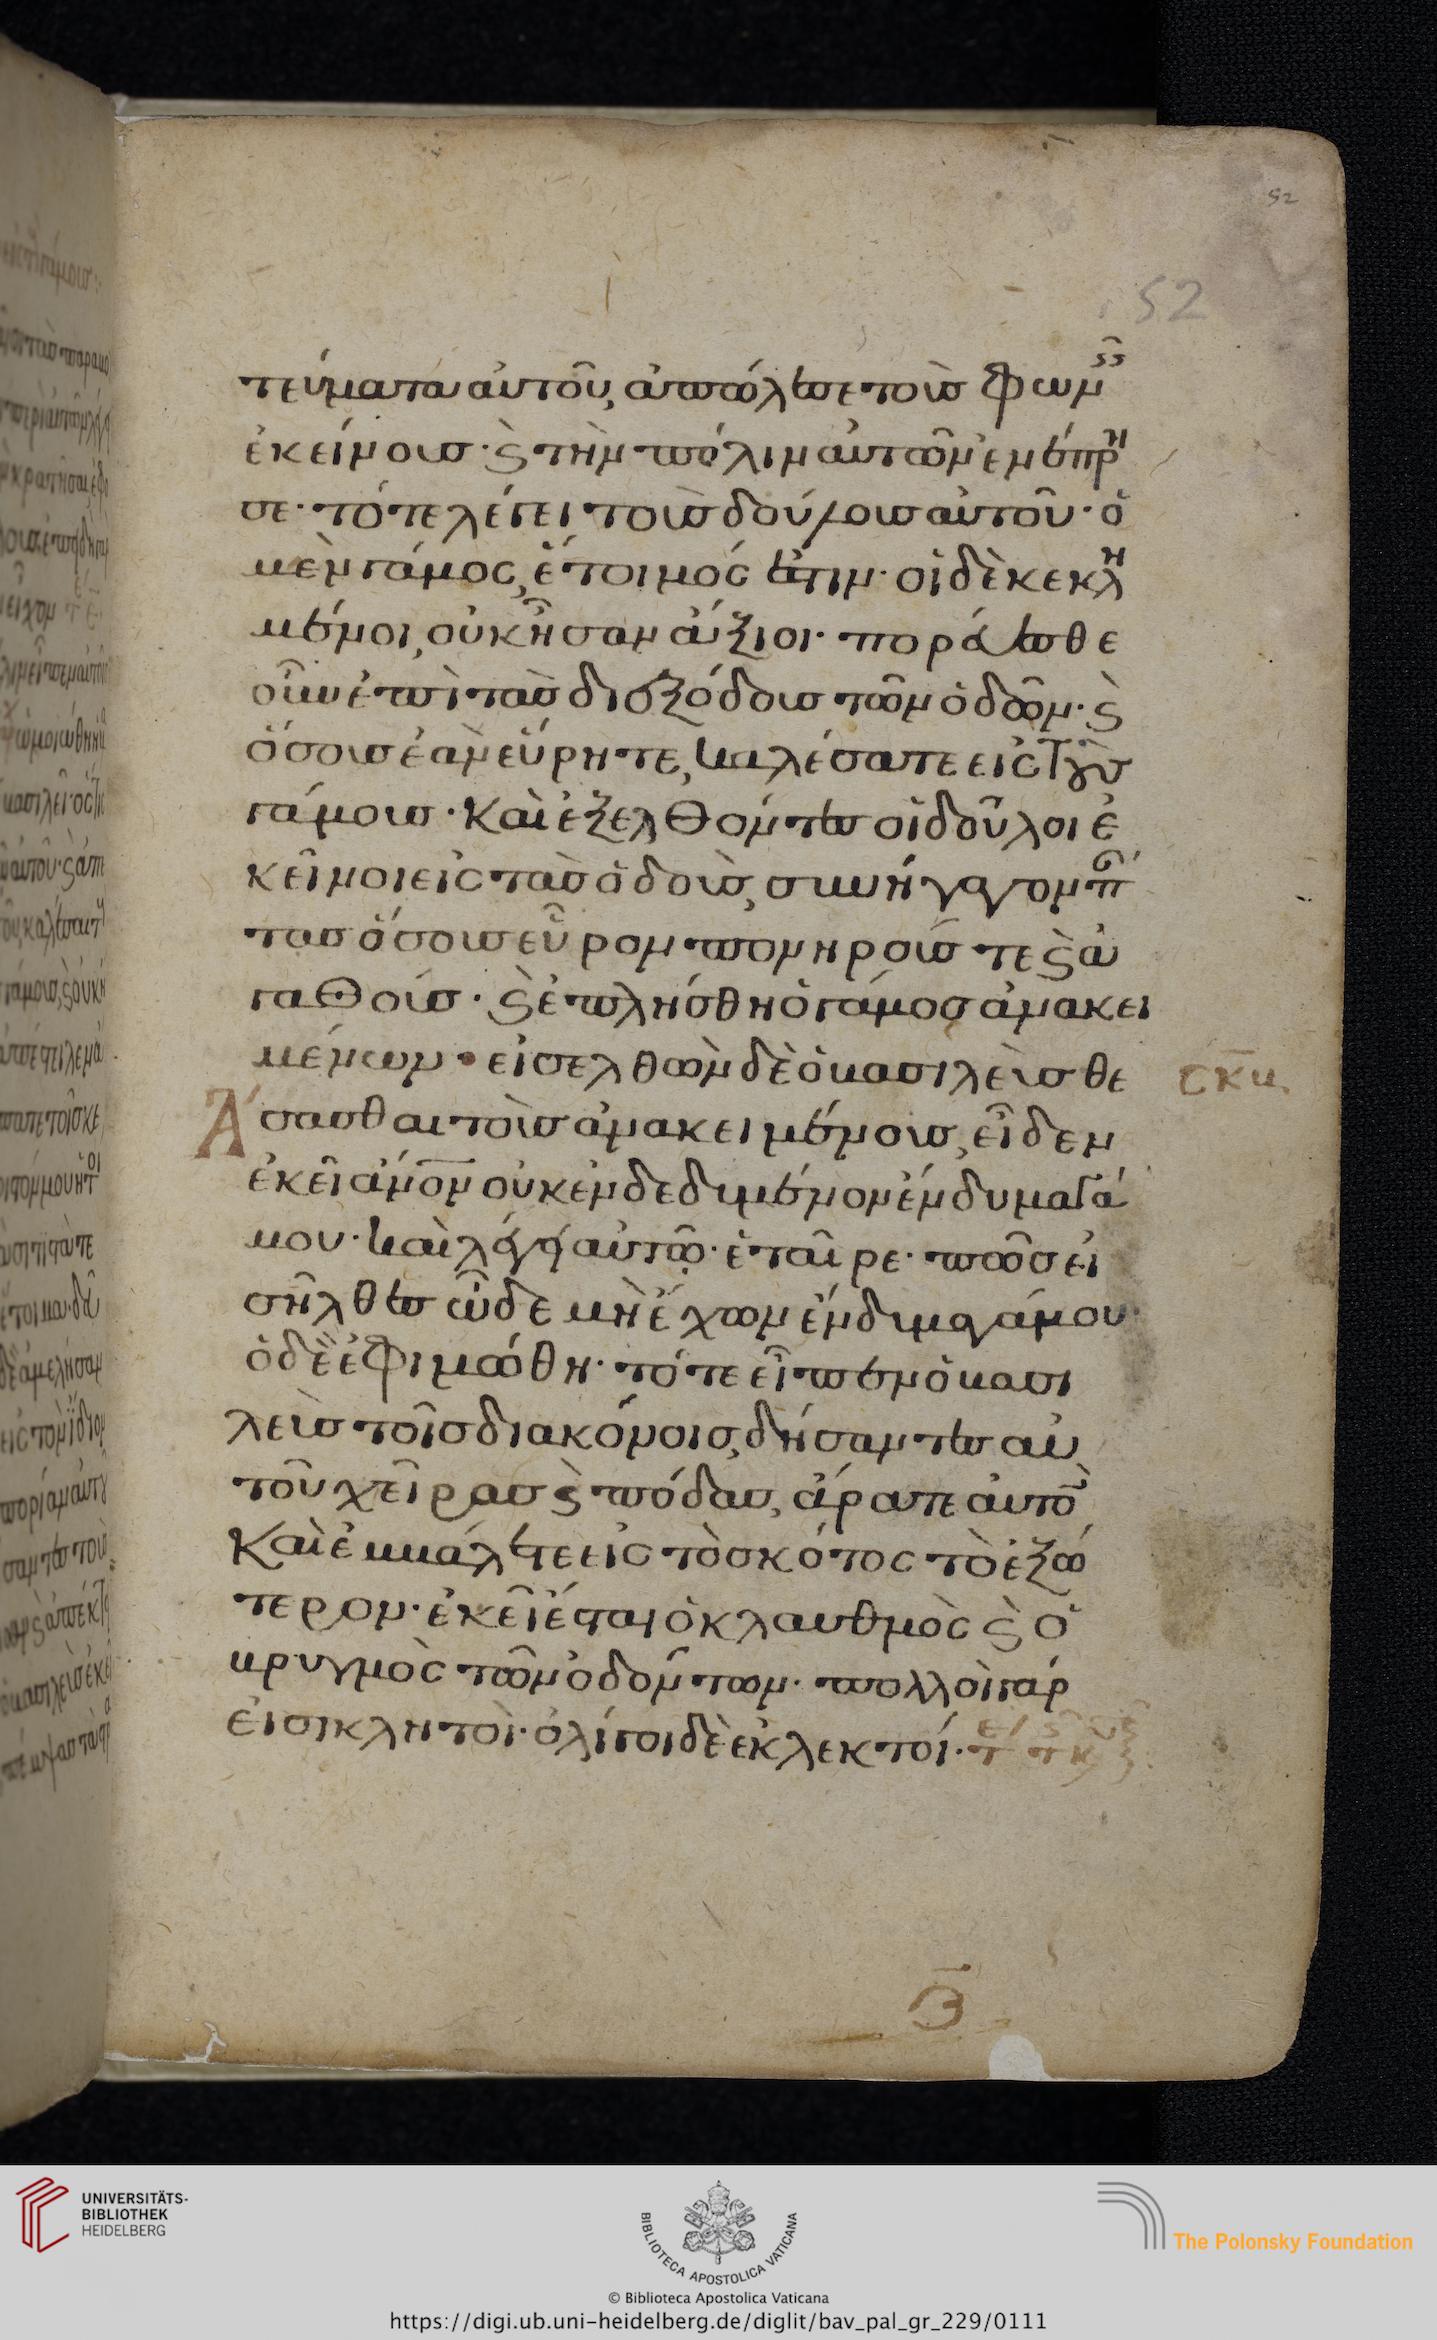 52
52
τεύματα αὐτοῦ, ἀπώλεσε τοὺς φων
ἐκείνους· ϗ τὴν πόλιν αὐτῶν ἐνέπρη
σε· τότε λέγει τοὺς δούλοις αὐτοῦ· ὁ
μὲν γάμος, ἕτοιμός ἐστιν· οἱ δὲ κεκλη
μένοι, οὐκ ἦσαν ἄξιοι· πορεύεσθε
οὖν ἐπὶ τὰς διεξόδους τῶν ὁδῶν· ϗ
ὅσους ἐὰν εὕρητε, καλέσατε εἰς τοὺς
γάμους· Καὶ ἐξελθόντες οἱ δοῦλοι ἐ
κεῖνοι εἰς τὰς ὁδοὺς, συνήγαγον πάν
τας ὅσους εὗρον πονηρούς τε ϗ ἀ
γαθούς· ϗ ἐπλήσθη ὁ γάμος ἀνακει
μένων· εἰσελθὼν δὲ ὁ βασιλεὺς θε
σκβ
Ά
σασθαι τοὺς ἀνακειμένους, εἶδεν
ἐκεῖ ἄνον οὐκ ἐνδεδυμένον ἔνδυμα γά
μου· καὶ λέγει αὐτῷ· ἑταῖρε· πῶς εἰ
σῆλθες ὧδε μὴ ἔχων ἔνδυμα γάμου·
ὁ δὲ ἐφιμώθη· τότε εἶπεν ὁ βασι
λεὺς τοῖς διακόνοις, δήσαντες αὐ
τοῦ χεῖρας ϗ πόδας, ἄρατε αὐτὸ
Καὶ ἐκβάλετε εἰς τὸ σκότος τὸ ἐξώ
τερον· ἐκεῖ ἔσται ὁ κλαυθμὸς ϗ ὁ
βρυγμὸς τῶν ὀδόντων· πολλοὶ γάρ
εἰσι κλητοὶ· ὀλίγοι δὲ ἐκλεκτοί·
UNIVERSITÄTS-
BIBLIOTHEK
HEIDELBERG
BIBLIOTECA APOSTOLICA VATICANA
© Biblioteca Apostolica Vaticana
The Polonsky Foundation
https://digi.ub.uni-heidelberg.de/diglit/bav_pal_gr_229/0111